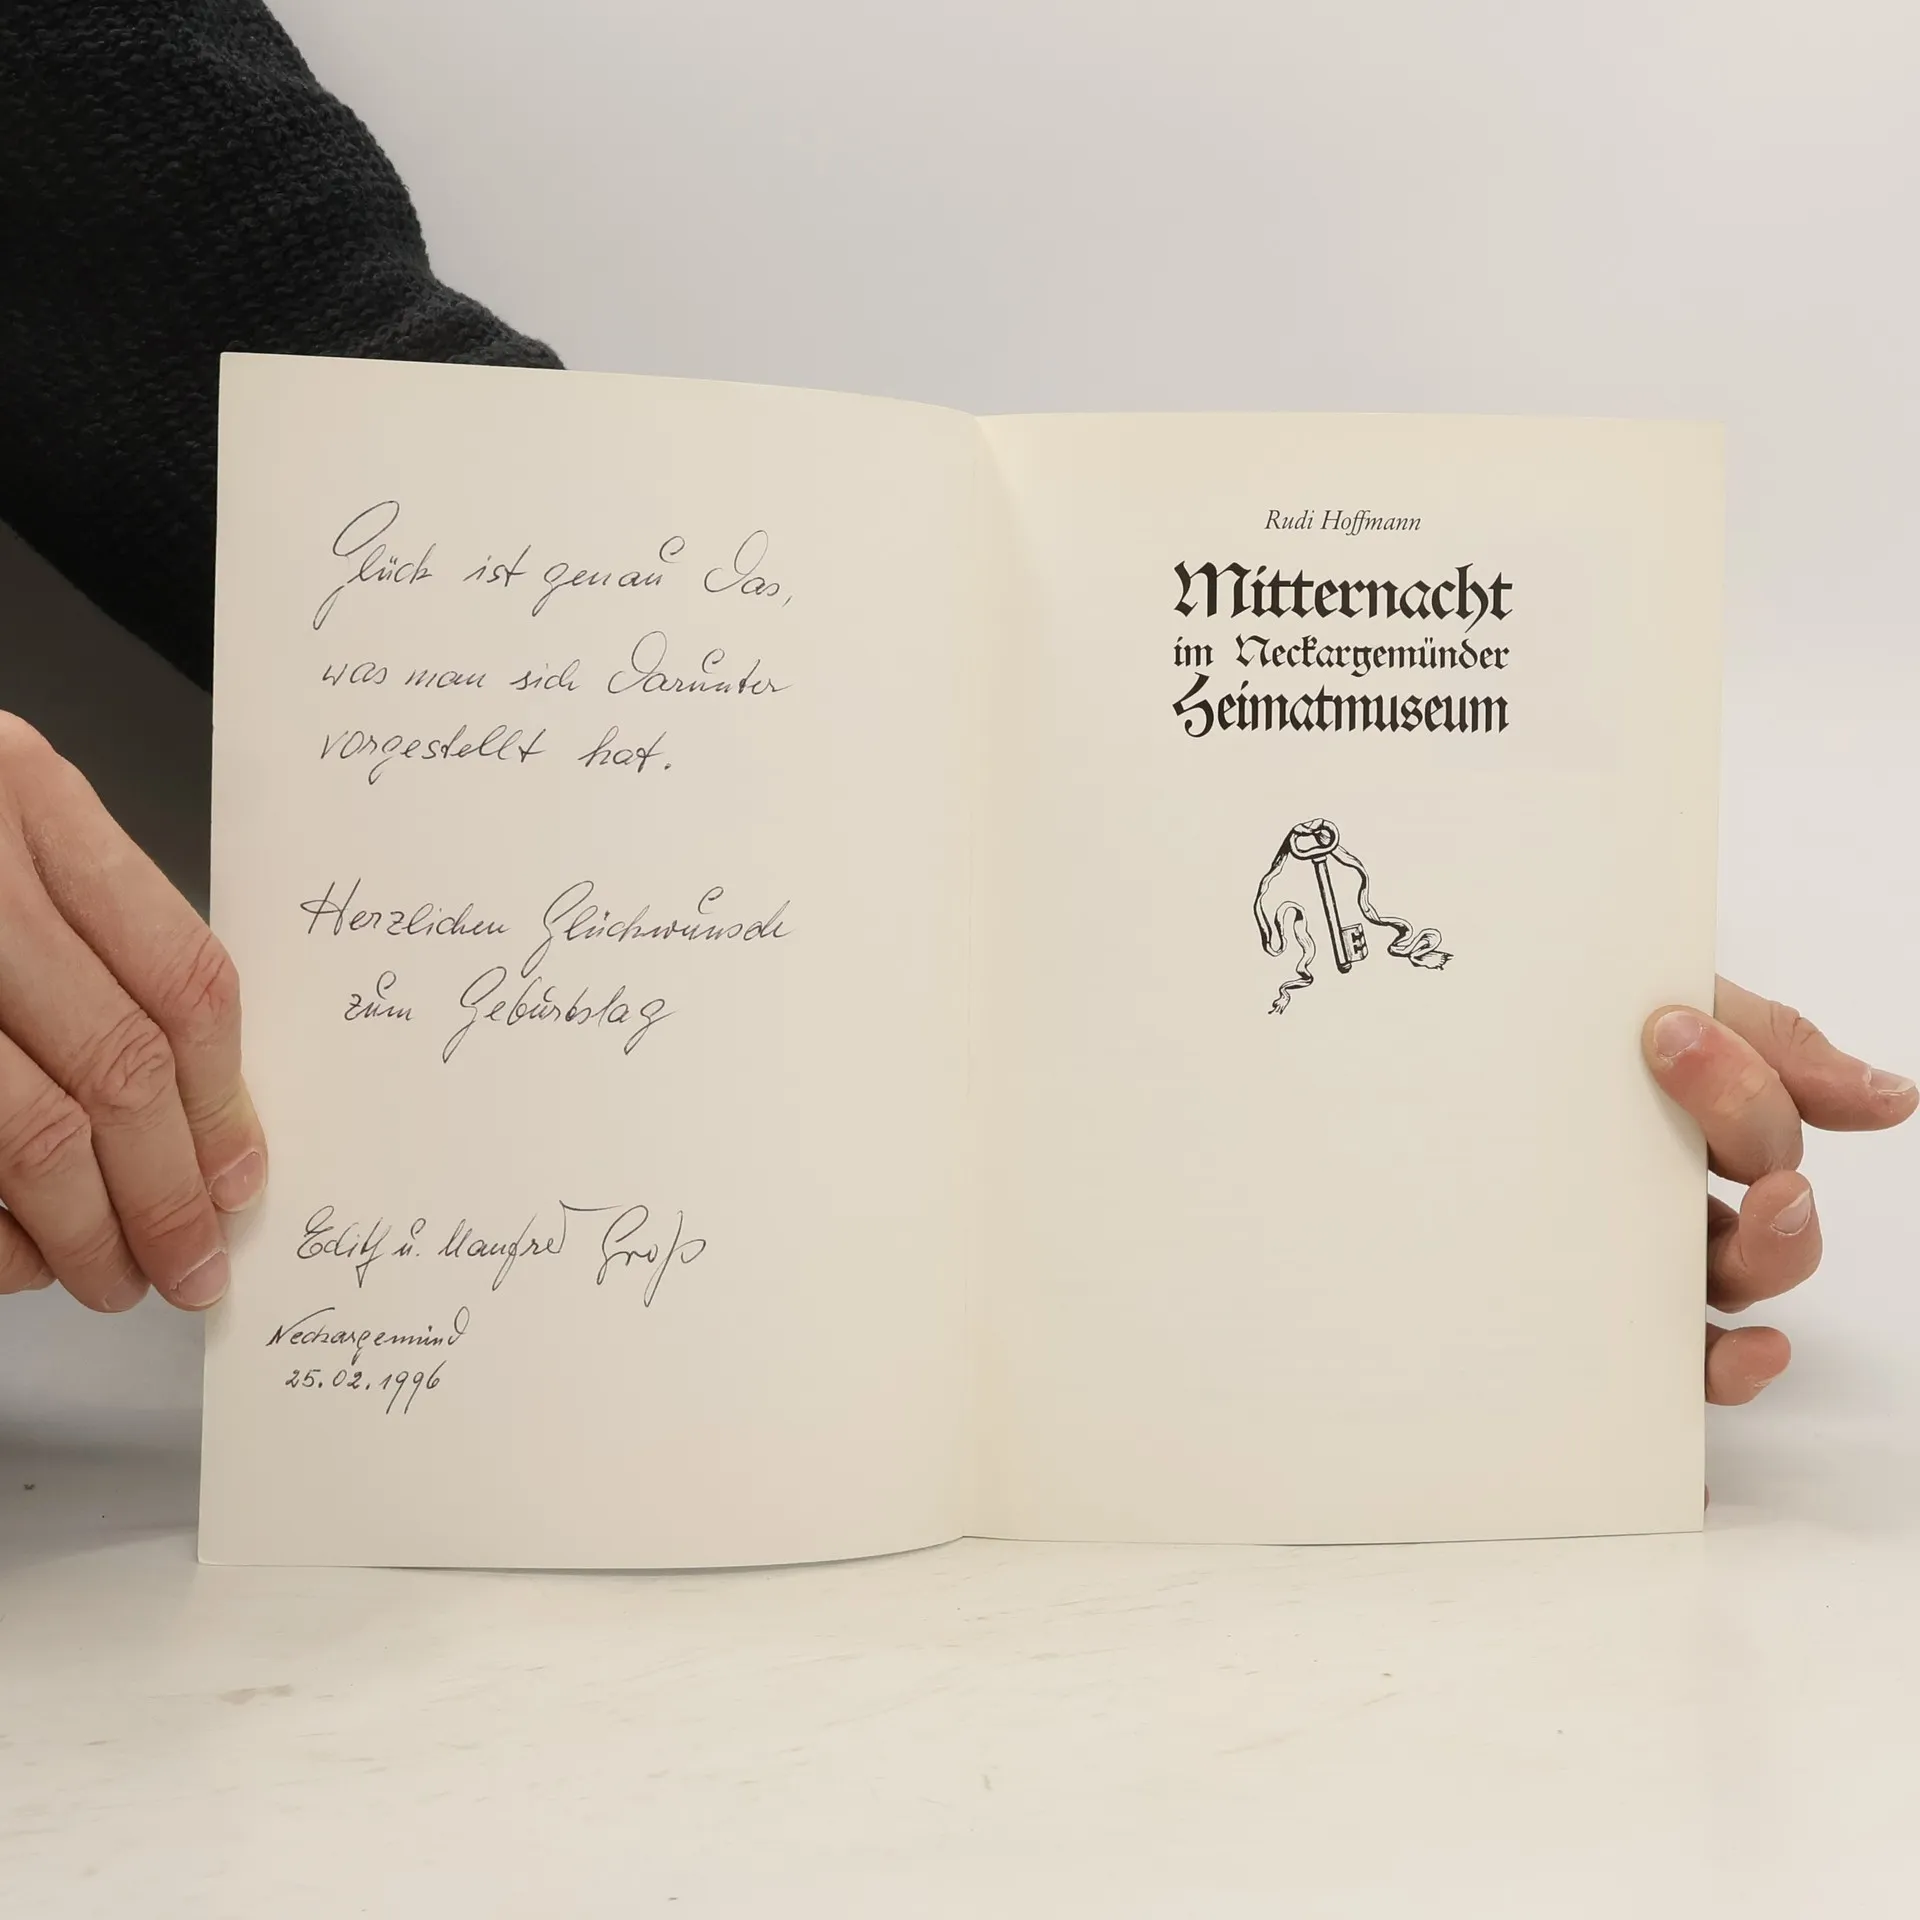 Glück ist genau das,
was man sich darunter
vorgestellt hat.
Herzlichen Glückwunsch
zum Geburtstag
Edith u. Manfred Groß
Neckargemünd
25.02.1996
Rudi Hoffmann
Mitternacht
im Neckargemünder
Heimatmuseum